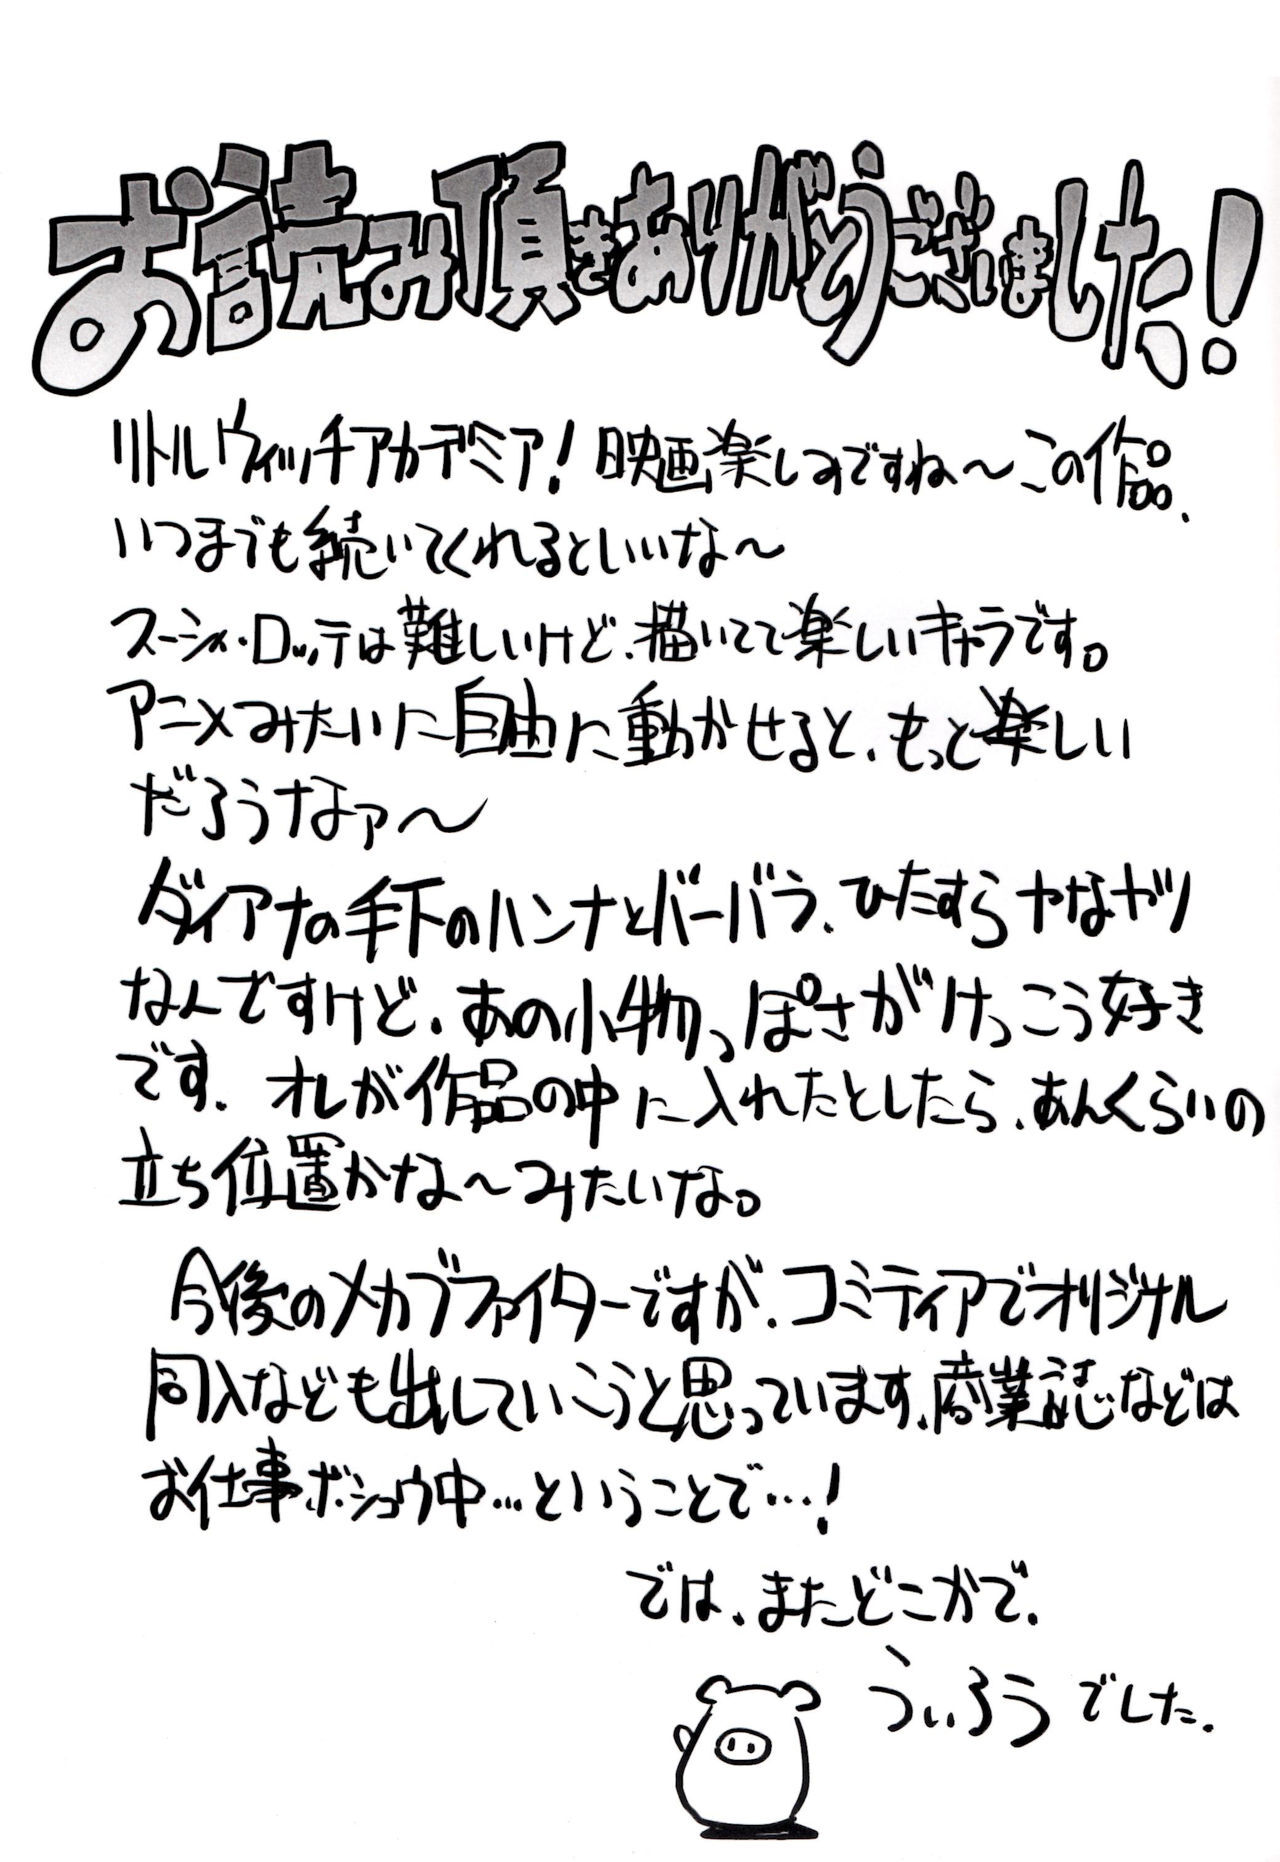 お読み頂きありがとうございました!
リトルウィッチアカデミア!映画楽しみですね〜この作品、
いつまでも続いてくれるといいな〜
スーシィ・ロッテは難しいけど、描いてて楽しいキャラです。
アニメみたいに自由に動かせると、もっと楽しい
だろうなァ〜
ダイアナの手下のハンナとバーバラ、ひたすらヤなヤツ
なんですけど、あの小物っぽさがけっこう好き
です。オレが作品の中に入れたとしたら、あんくらいの
立ち位置かな〜みたいな。
今後のメカブファイターですが、コミティアでオリジナル
同人なども出していこうと思っています、商業誌などは
お仕事ボシュウ中…ということで…!
では、またどこかで、
ういろうでした、